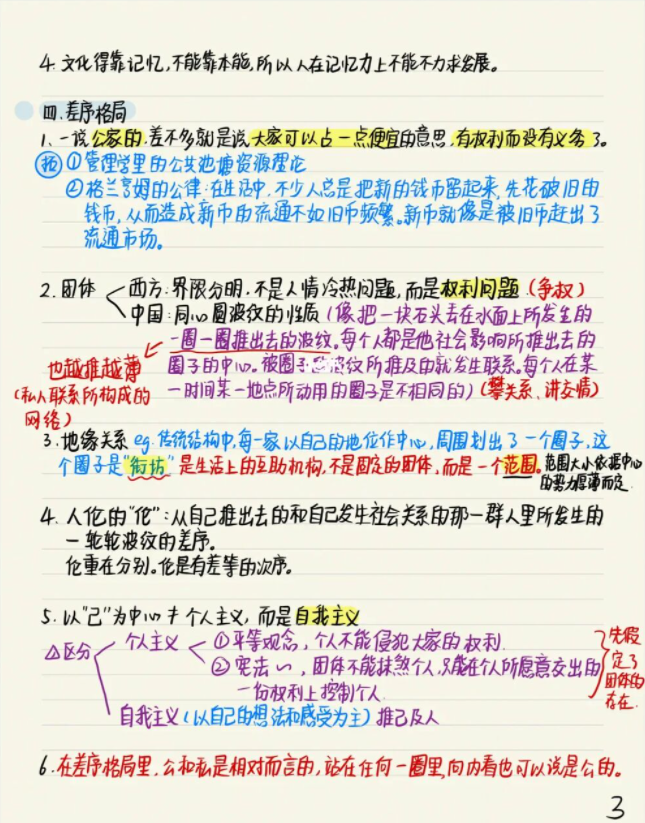 4. 文化得靠记忆,不能靠本能,所以人在记忆力上不能不力求发展。
四.差序格局
1. 一说公家的.差不多就是说大家可以占一点便宜的意思,有权利而没有义务了。
①管理学里的公共池塘资源理论
②格兰亨姆的公律:在生活中,不少人总是把新的钱币留起来,先花破旧的
钱币,从而造成新币的流通不如旧币频繁。新币就像是被旧币赶出了
流通市场。
2. 团体 西方:界限分明.不是人情冷热问题,而是权利问题(争权)
中国:同心圆波纹的性质(像把一块石头丢在水面上所发生的
一圈一圈推出去的波纹。每个人都是他社会影响所推出去的
也越推越薄 圈子的中心。被圈子的波纹所推及的就发生联系。每个人在某
(私人联系所构成的 一时间某一地点所动用的圈子是不相同的)(攀关系、讲交情)
网络)
3. 地缘关系 eg.传统结构中,每一家以自己的地位作中心,周围划出了一个圈子,这
个圈子是“街坊”是生活上的互助机构,不是固定的团体,而是一个范围。范围大小依据中心
的势力厚薄而定.
4. 人伦的“伦”:从自己推出去的和自己发生社会关系的那一群人里所发生的
一轮轮波纹的差序。
伦重在分别。伦是有差等的次序。
5. 以“己”为中心≠个人主义,而是自我主义
△区分 个人主义 ①平等观念,个人不能侵犯大家的权利. 先假
②宪法~,团体不能抹煞个人,只能在个人所愿意交出的 定了
一份权利上控制个人. 团体的
存在.
自我主义(以自己的想法和感受为主)推己及人
6. 在差序格局里,公和私是相对而言的,站在任何一圈里,向内看也可以说是公的。
3